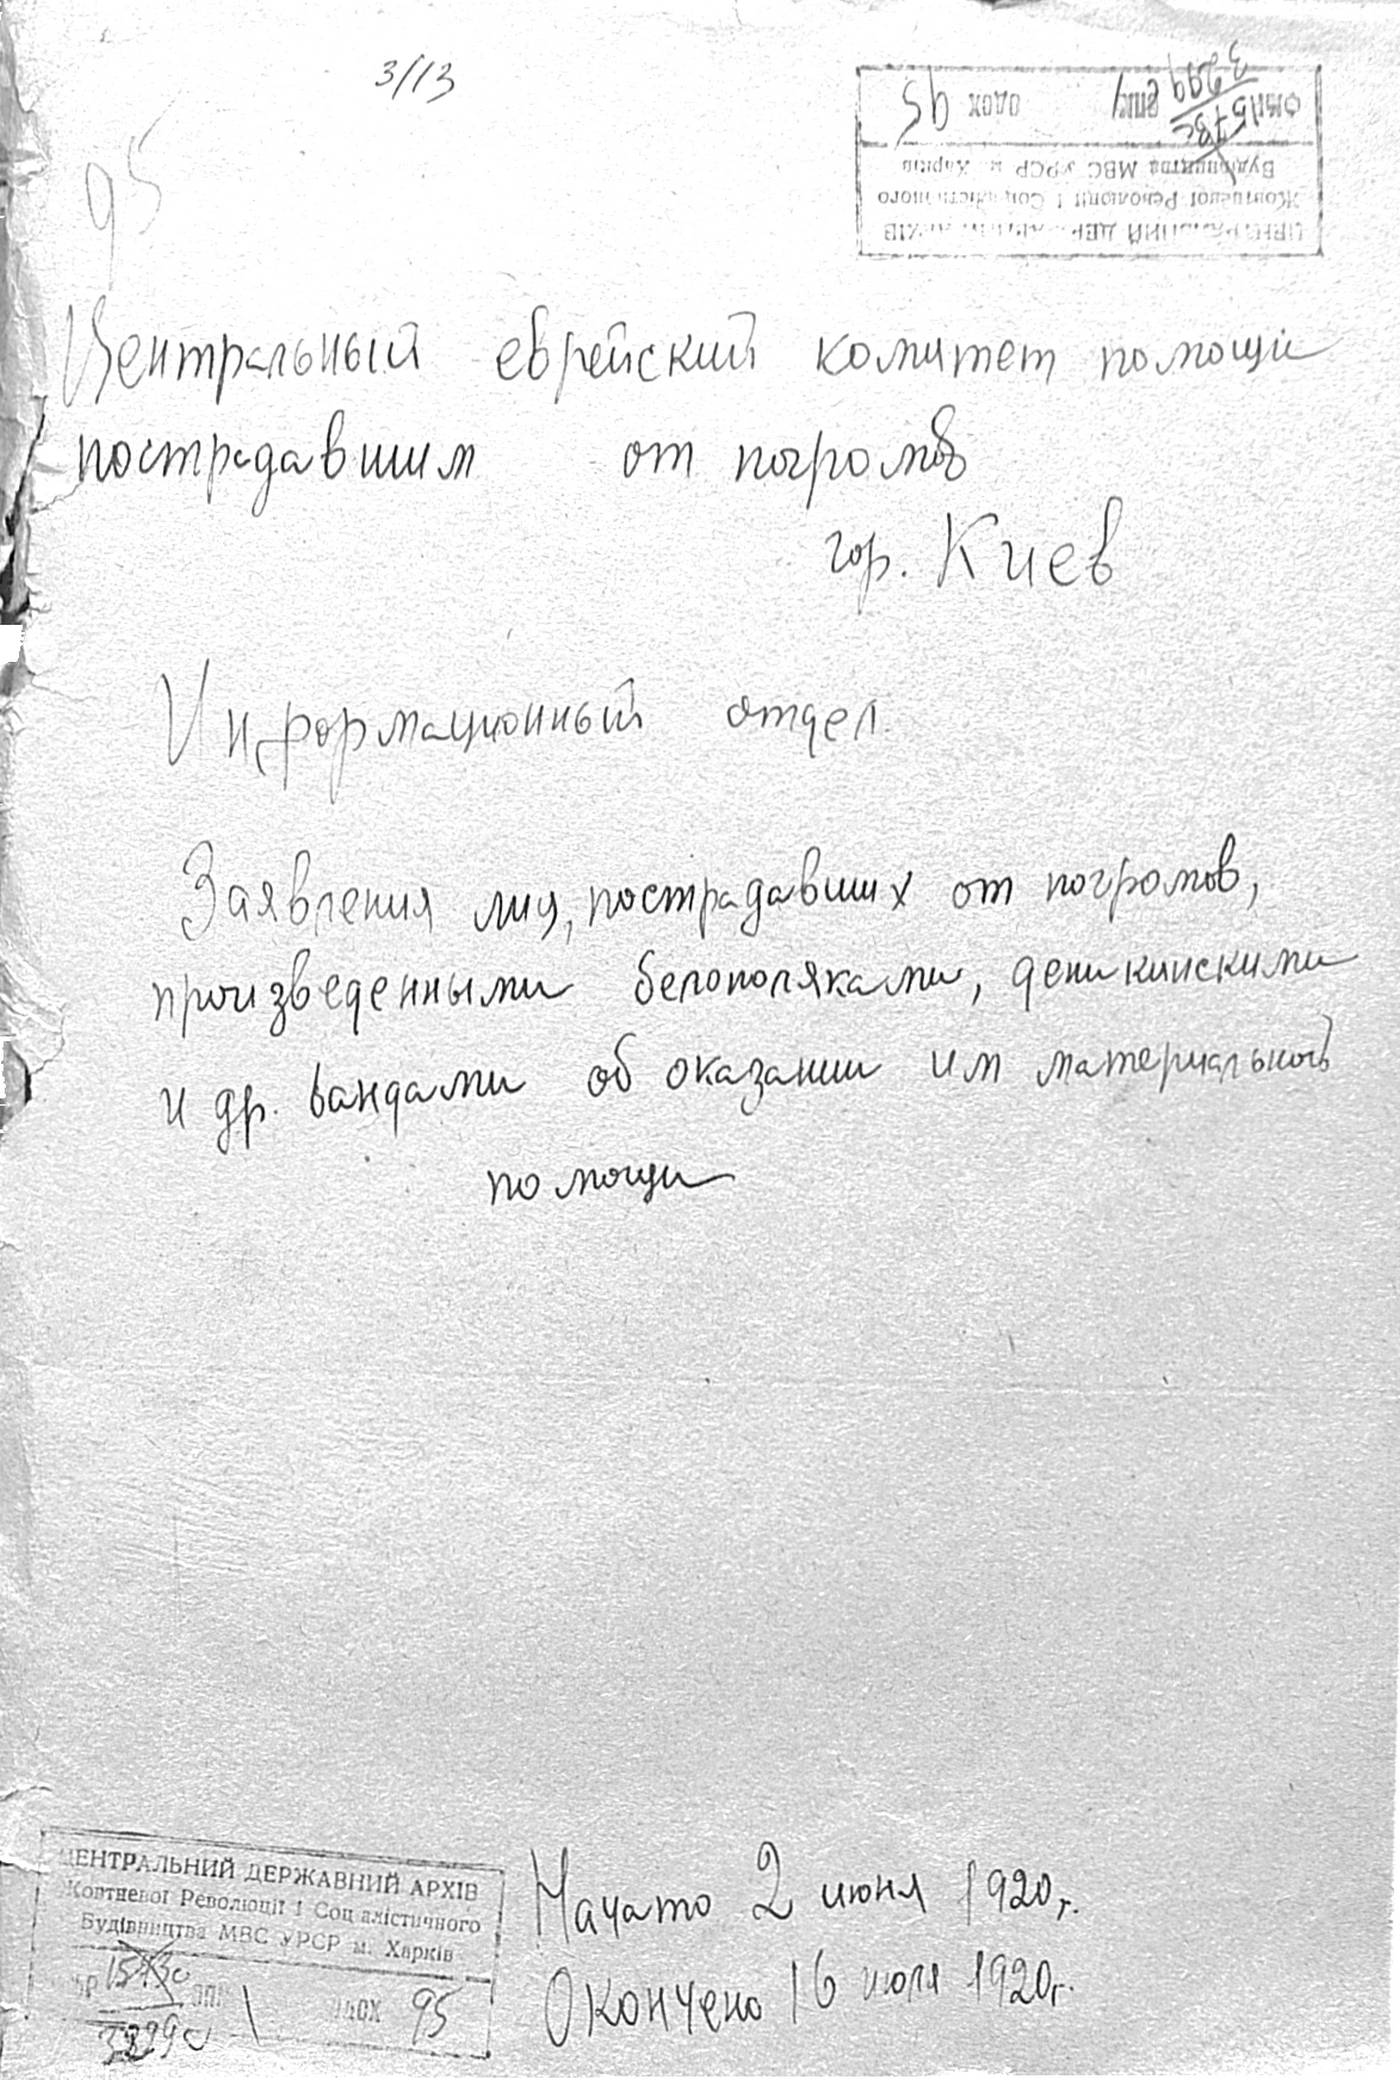 3/13
95
ЦЕНТРАЛЬНИЙ ДЕРЖАВНИЙ АРХІВ
Жовтневої Революції і Соціалістичного
Будівництва МВС УРСР м. Харків
опис 1 одох 95
Центральный еврейский комитет помощи
пострадавшим от погромов
гор. Киев
Информационный отдел.
Заявления лиц, пострадавших от погромов,
произведенными белополяками, деникинскими
и др. бандами об оказании им материальной
помощи
ЦЕНТРАЛЬНИЙ ДЕРЖАВНИЙ АРХІВ
Жовтневої Революції і Соціалістичного
Будівництва МВС УРСР м. Харків
одох 95
Начато 2 июня 1920 г.
Окончено 16 июля 1920 г.